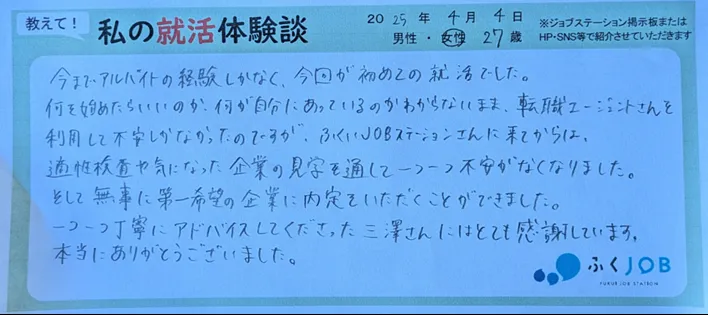 教えて！
私の就活体験談
2025年 4月 4日
男性・女性 27歳
※ジョブステーション掲示板または
HP・SNS等で紹介させていただきます
今までアルバイトの経験しかなく、今回が初めての就活でした。
何を始めたらいいのか、何が自分にあっているのかわからないまま、転職エージェントさんを
利用して不安しかなかったのですが、ふくいJOBステーションさんに来てからは、
適性検査や気になった企業の見学を通して一つ一つ不安がなくなりました。
そして無事に第一希望の企業に内定をいただくことができました。
一つ一つ丁寧にアドバイスしてくださった三澤さんにはとても感謝しています。
本当にありがとうございました。
ふくJOB
FUKUI JOB STATION